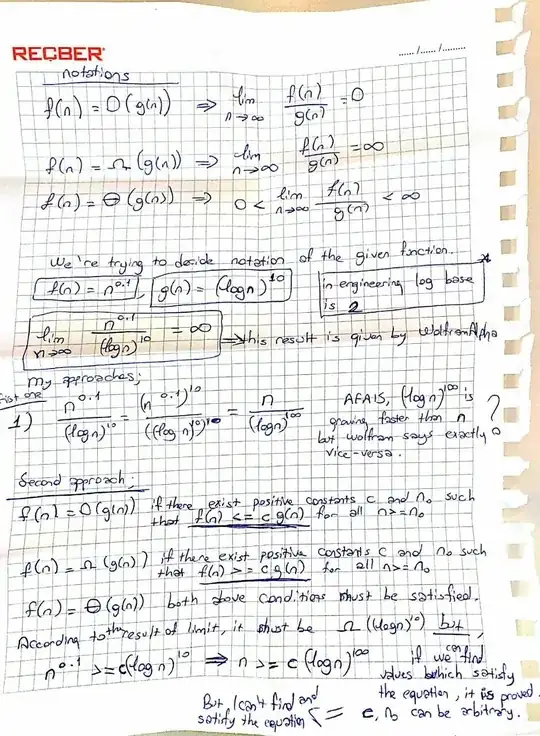 RECBER
....../....../.........
notations
f(n) = O(g(n)) ⇒ lim n→∞ f(n)/g(n) = 0
f(n) = Ω(g(n)) ⇒ lim n→∞ f(n)/g(n) = ∞
f(n) = Θ(g(n)) ⇒ 0 < lim n→∞ f(n)/g(n) < ∞
We're trying to decide notation of the given function. *
f(n) = n^0.1, g(n) = (logn)^10
in engineering log base
is 2
lim n→∞ n^0.1/(logn)^10 = ∞ ⇒ this result is given by WolframAlpha
my approaches;
First one
1) n^0.1/(logn)^10 = (n^0.1)^10/((logn)^10)^10 = n/(logn)^100
AFAIS, (logn)^100 is
growing faster than n ?
but wolfram says exactly
vice-versa.
Second approach;
f(n) = O(g(n)) if there exist positive constants c and n₀ such
that f(n) <= c.g(n) for all n>=n₀
f(n) = Ω(g(n)) if there exist positive constants c and n₀ such
that f(n) >= c.g(n) for all n>=n₀
f(n) = Θ(g(n)) both above conditions must be satisfied.
According to the result of limit, it must be Ω((logn)^10) but,
n^0.1 >= c(logn)^10 ⇒ n >= c(logn)^100
if we can find
values which satisfy
the equation, it is proved.
c, n₀ can be arbitrary.
But I can't find and
satisfy the equation